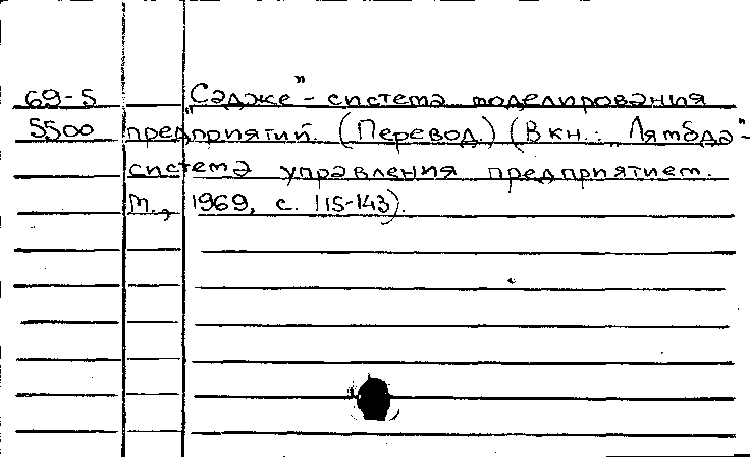 69-5 "Сэдже" - система моделирования
5500 предприятий. (Перевод.) (В кн.: "Лямбда"-
система управления предприятием.
М., 1969, с. 115-143).